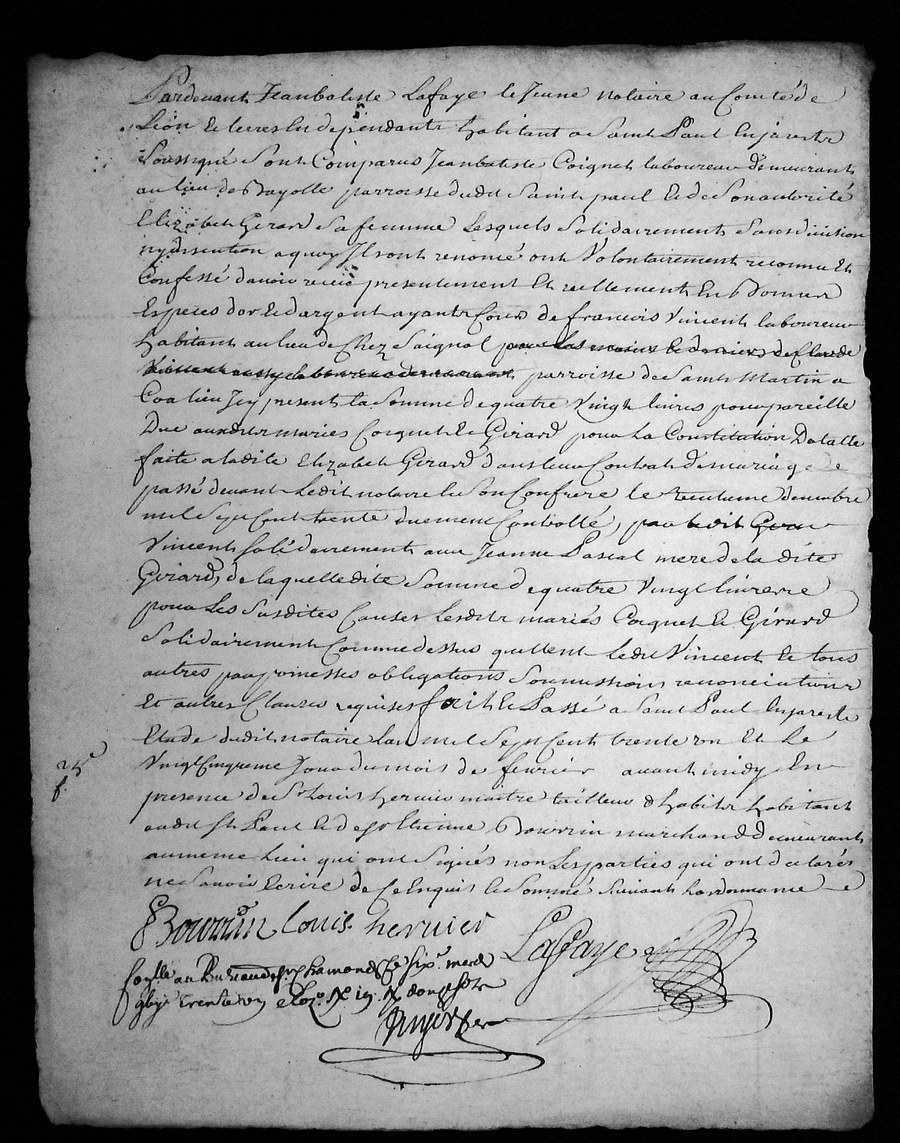 Pardevant Jeanbatiste Lafaye le Jeune notaire au Comté de
Lion Et terres En dependants habitant a Saint Paul Enjareste
Soussigné Sont Comparus Jeanbatiste Coignet laboureur demeurant
au lieu de Bayolle parroisse dudit Saint paul Et de Son autorité
Elizabet Gerard Sa femme Lesquels Solidairement Sans division
ny discution a quoy Ils ont renoncé ont Volontairement reconnu Et
Confessé d'avoir receu presentement Et reellement En Bonnes
Especes dor Et dargent ayant Cours de francois Vincent laboureur
habitant au lieu de Chez Saignol par les mains Et deniers de Claude
Vincent aussy laboureur demeurant parroisse de Saint Martin a
Coalieu Icy present la Somme de quatre Vingt livres pour pareille
Due auxdits mariés Coignet Et Girard pour La Constitution Dotalle
faite a ladite Elizabet Gerard dans leur Contrat de mariage
passé devant Ledit notaire Et Son Confrere le
mil Sept Cent trente duement Controllé, par ledit
Vincent Solidairement avec Jeanne Pascal mere de la dite
Girard, de laquelle dite Somme de quatre Vingt livres
pour Les Susdites Causes lesdits mariés Coignet Et Girard
Solidairement Comme dessus quittent ledit Vincent Et tous
autres par promesses obligations Soumissions renonciations
Et autres Clauses requises fait Et Passé a Saint Paul Enjareste
Etude dudit notaire Lan mil Sept Cent trente un Et Le
Vingt Cinquieme Jour du mois de fevrier avant midy En
presence de Sr Louis hervier maitre tailleur d'habits habitant
audit St Paul Et de Sr Etienne Bourrin marchand demeurant
au meme Lieu qui ont Signés non Les parties qui ont declarés
ne Savoir Ecrire de Ce Enquis Et Sommé Suivant Lordonnance
Bourrin Louis hervier
Lafaye
Con.lle au Bureau de St Chamond Ce Six.e mars